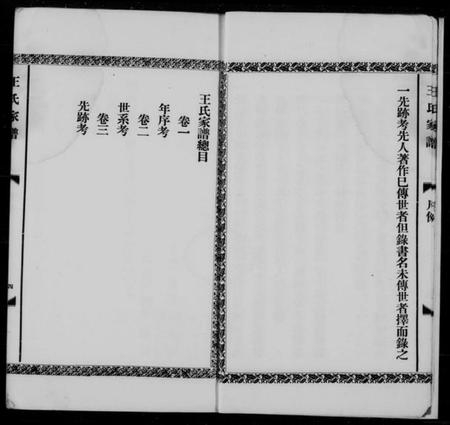 王氏家譜
凡例
一先跡考先人著作已傳世者但錄書名未傳世者擇而錄之
王氏家譜總目
卷一
年序考
卷二
世系考
卷三
先跡考
王氏家譜
四